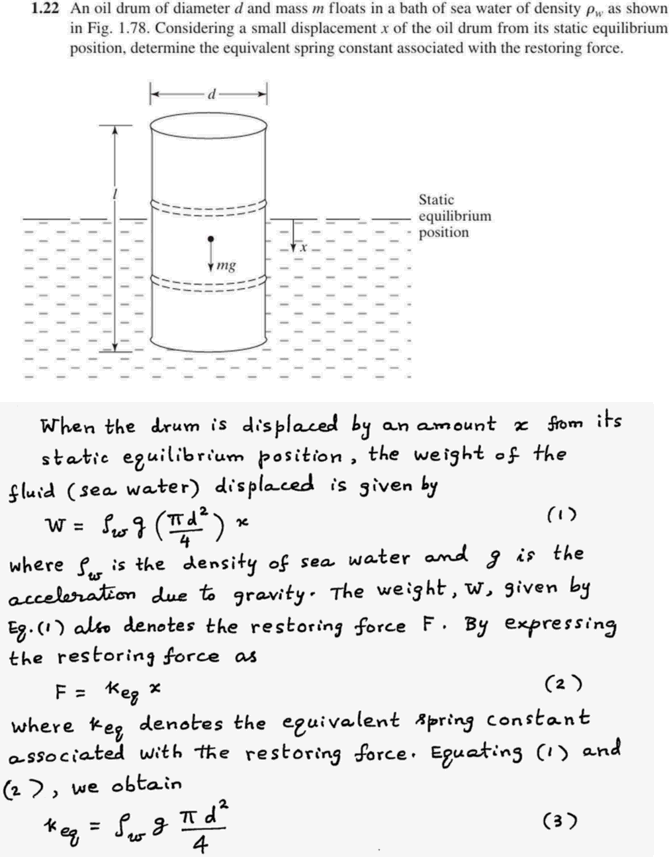 1.22 An oil drum of diameter d and mass m floats in a bath of sea water of density ρw as shown
in Fig. 1.78. Considering a small displacement x of the oil drum from its static equilibrium
position, determine the equivalent spring constant associated with the restoring force.
d
l
Static
equilibrium
position
x
mg
When the drum is displaced by an amount x from its
static equilibrium position, the weight of the
fluid (sea water) displaced is given by
W = ρw g (πd²/4) x (1)
where ρw is the density of sea water and g is the
acceleration due to gravity. The weight, W, given by
Eq. (1) also denotes the restoring force F. By expressing
the restoring force as
F = keq x (2)
where keq denotes the equivalent spring constant
associated with the restoring force. Equating (1) and
(2), we obtain
keq = ρw g πd²/4 (3)